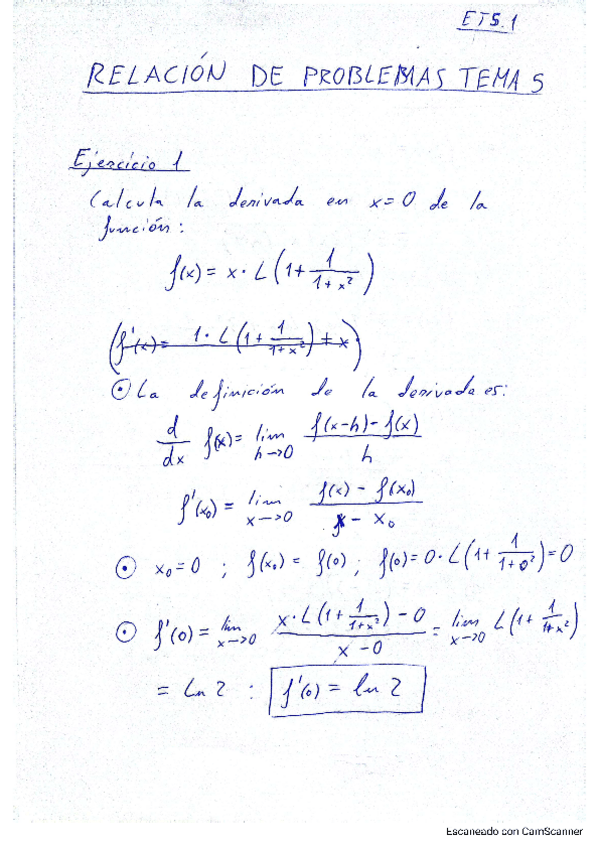 ET5.1
RELACIÓN DE PROBLEMAS TEMA 5
Ejercicio 1
Calcula la derivada en x=0 de la
función:
f(x) = x · L(1 + 1/(1+x²))
(f'(x) = 1 · L(1 + 1/(1+x²)) + x)
⊙ La definición de la derivada es:
d/dx f(x) = lim h→0 (f(x-h) - f(x))/h
f'(x₀) = lim x→0 (f(x) - f(x₀))/(x - x₀)
⊙ x₀=0 ; f(x₀) = f(0) ; f(0) = 0 · L(1 + 1/(1+0²)) = 0
⊙ f'(0) = lim x→0 (x · L(1 + 1/(1+x²)) - 0)/(x - 0) = lim x→0 L(1 + 1/(1+x²))
= Ln 2 : f'(0) = ln 2
Escaneado con CamScanner